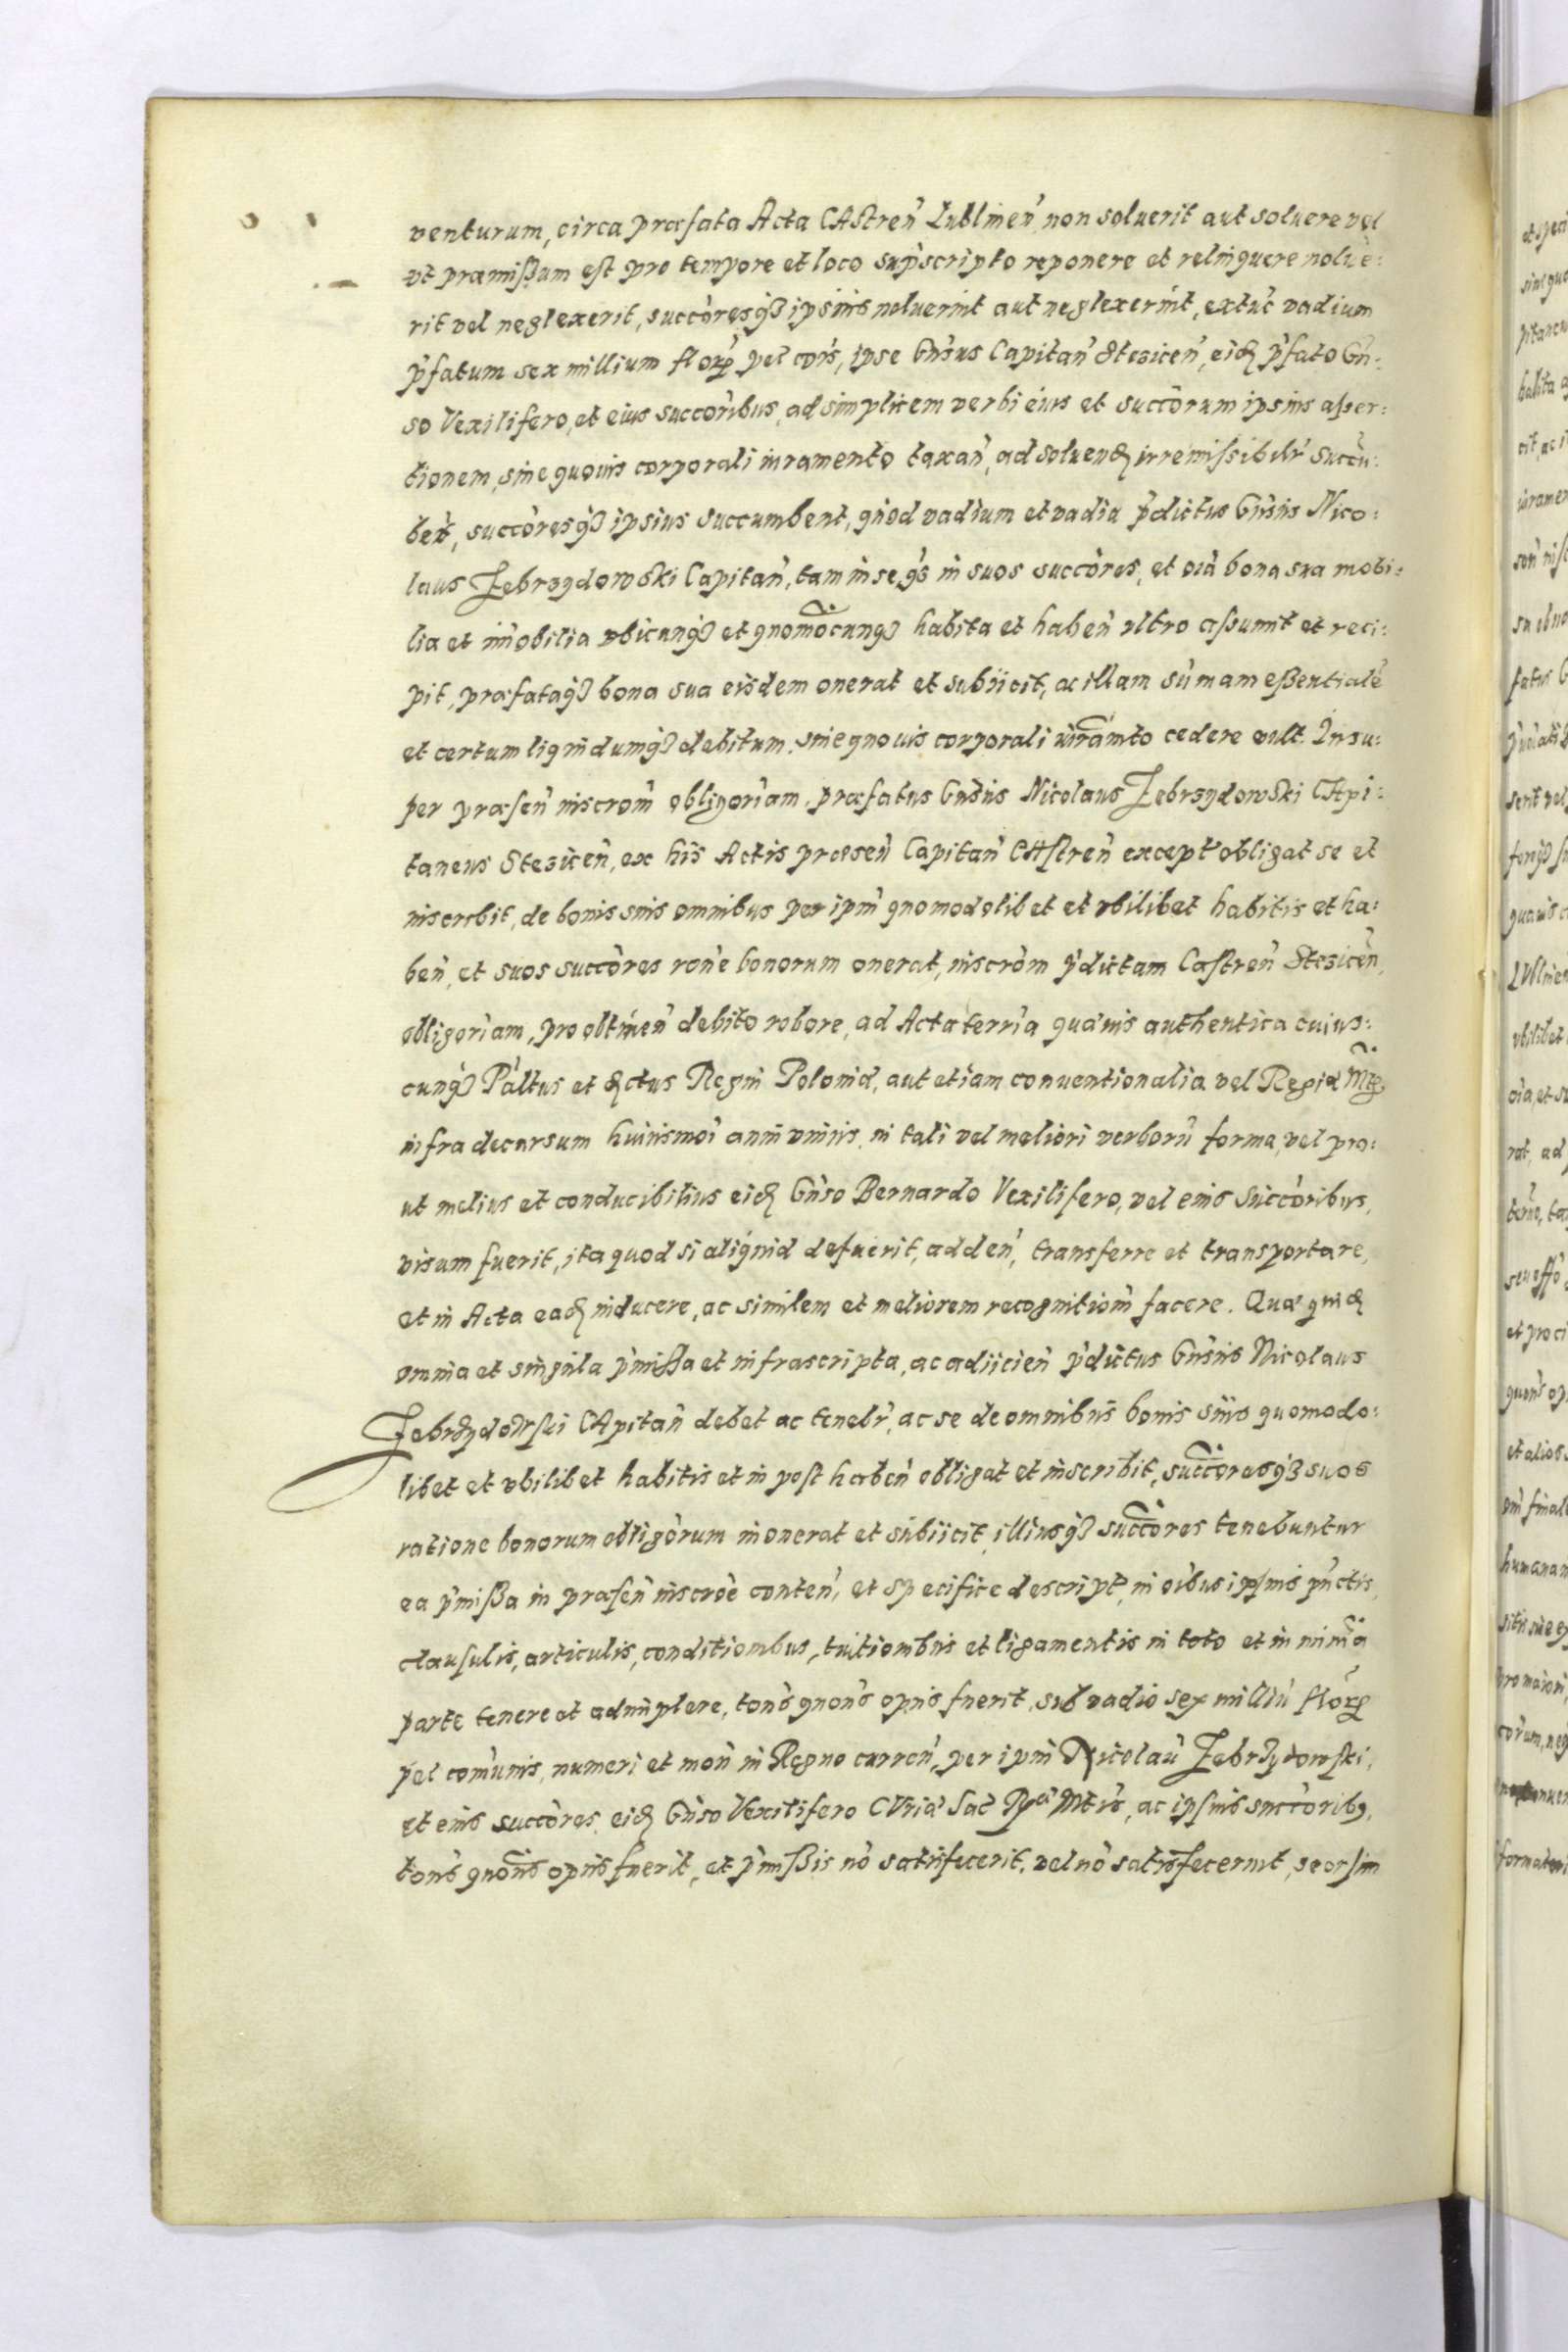 venturum, circa præfata Acta CAstreñ Lublineñ non soluerit aut soluere vel
vt præmißum est pro tempore et loco supscripto reponere et relinquere nolue:
rit vel neglexerit, succoresq3 ipsius noluerint aut neglexerint, extuc vadium
pfatum sex millium floru pec cois, ipse Gnsus Capitañ Steziceñ, eid pfato Gn:
so Vexilifero, et eius succoribus, ad simplicem verbi eius et succorum ipsius aßer:
tionem, sine quouis corporali iuramento taxañ, ad soluend irremissibilr succu:
bet, succoresq3 ipsius succumbent, quod vadium et vadia pdictus Gnsus Nico:
laus Zebrzydowski Capitañ, tam in se q3 in suos succores, et oia bona sua mobi:
lia et imobilia vbicunq3 et quomocunq3 habita et habeñ vltro aßumit et reci:
pit, præfataq3 bona sua eisdem onerat et subiicit, ac illam sumam eßentiale
et certum liquidumq3 debitum, sine quouis corporali iuramto cedere vult. Insu:
per præseñ inscrom obligoriam, præfatus Gnsus Nicolaus Zebrzydowski CApi:
taneus Steziceñ, ex his Actis præseñ Capitañ CAstreñ except obligat se et
inscribit, de bonis suis omnibus per ipm quomodolibet et vbilibet habitis et ha:
beñ, et suos succores rone bonorum onerat, inscrom pdictam Castreñ Steziceñ,
obligoriam, pro obtineñ debito robore, ad Acta terria quauis authentica cuius:
cunq3 Paltus et dctus Regni Poloniæ, aut etiam conuentionalia vel Regiæ Mtis,
infra decursum huiusmoi anni vnius, in tali vel meliori verboru forma, vel pro:
ut melius et conducibilius eid Gnso Bernardo Vexilifero, vel eius succoribus,
visum fuerit, ita quod si aliquid defuerit, addeñ, transferre et transportare,
et in Acta ead inducere, ac similem et meliorem recognitiom facere. Quæ quid
omnia et singula pmissa et infrascripta, ac adiicieñ pdictus Gnsus Nicolaus
Zebrzydowski CApitañ debet ac tenebr, ac se de omnibus bonis suis quomodo:
libet et vbilibet habitis et in post habeñ obligat et inscribit, succoresq3 suos
ratione bonorum obligorum inonerat et subiicit, illiusq3 succores tenebuntur
ea pmißa in præseñ inscroe conteñ, et specifice descript, in oibus ipsius punctis,
clausulis, articulis, conditionibus, tuitionibus et ligamentis in toto et in nimia
parte tenere et adimplere, tons quons opus fuerit, sub vadio sex milliu floru
pec comunis, numeri et moñ in Regno curreñ, per ipm Nicolau Zebrzydowski,
et eius succores, eid Gnso Vexilifero CVriæ Sac Ræ Mtis, ac ipsius succorib9,
tons quons opus fuerit, et pmißis no satisfecerit, vel no satisfecerint, seorsim